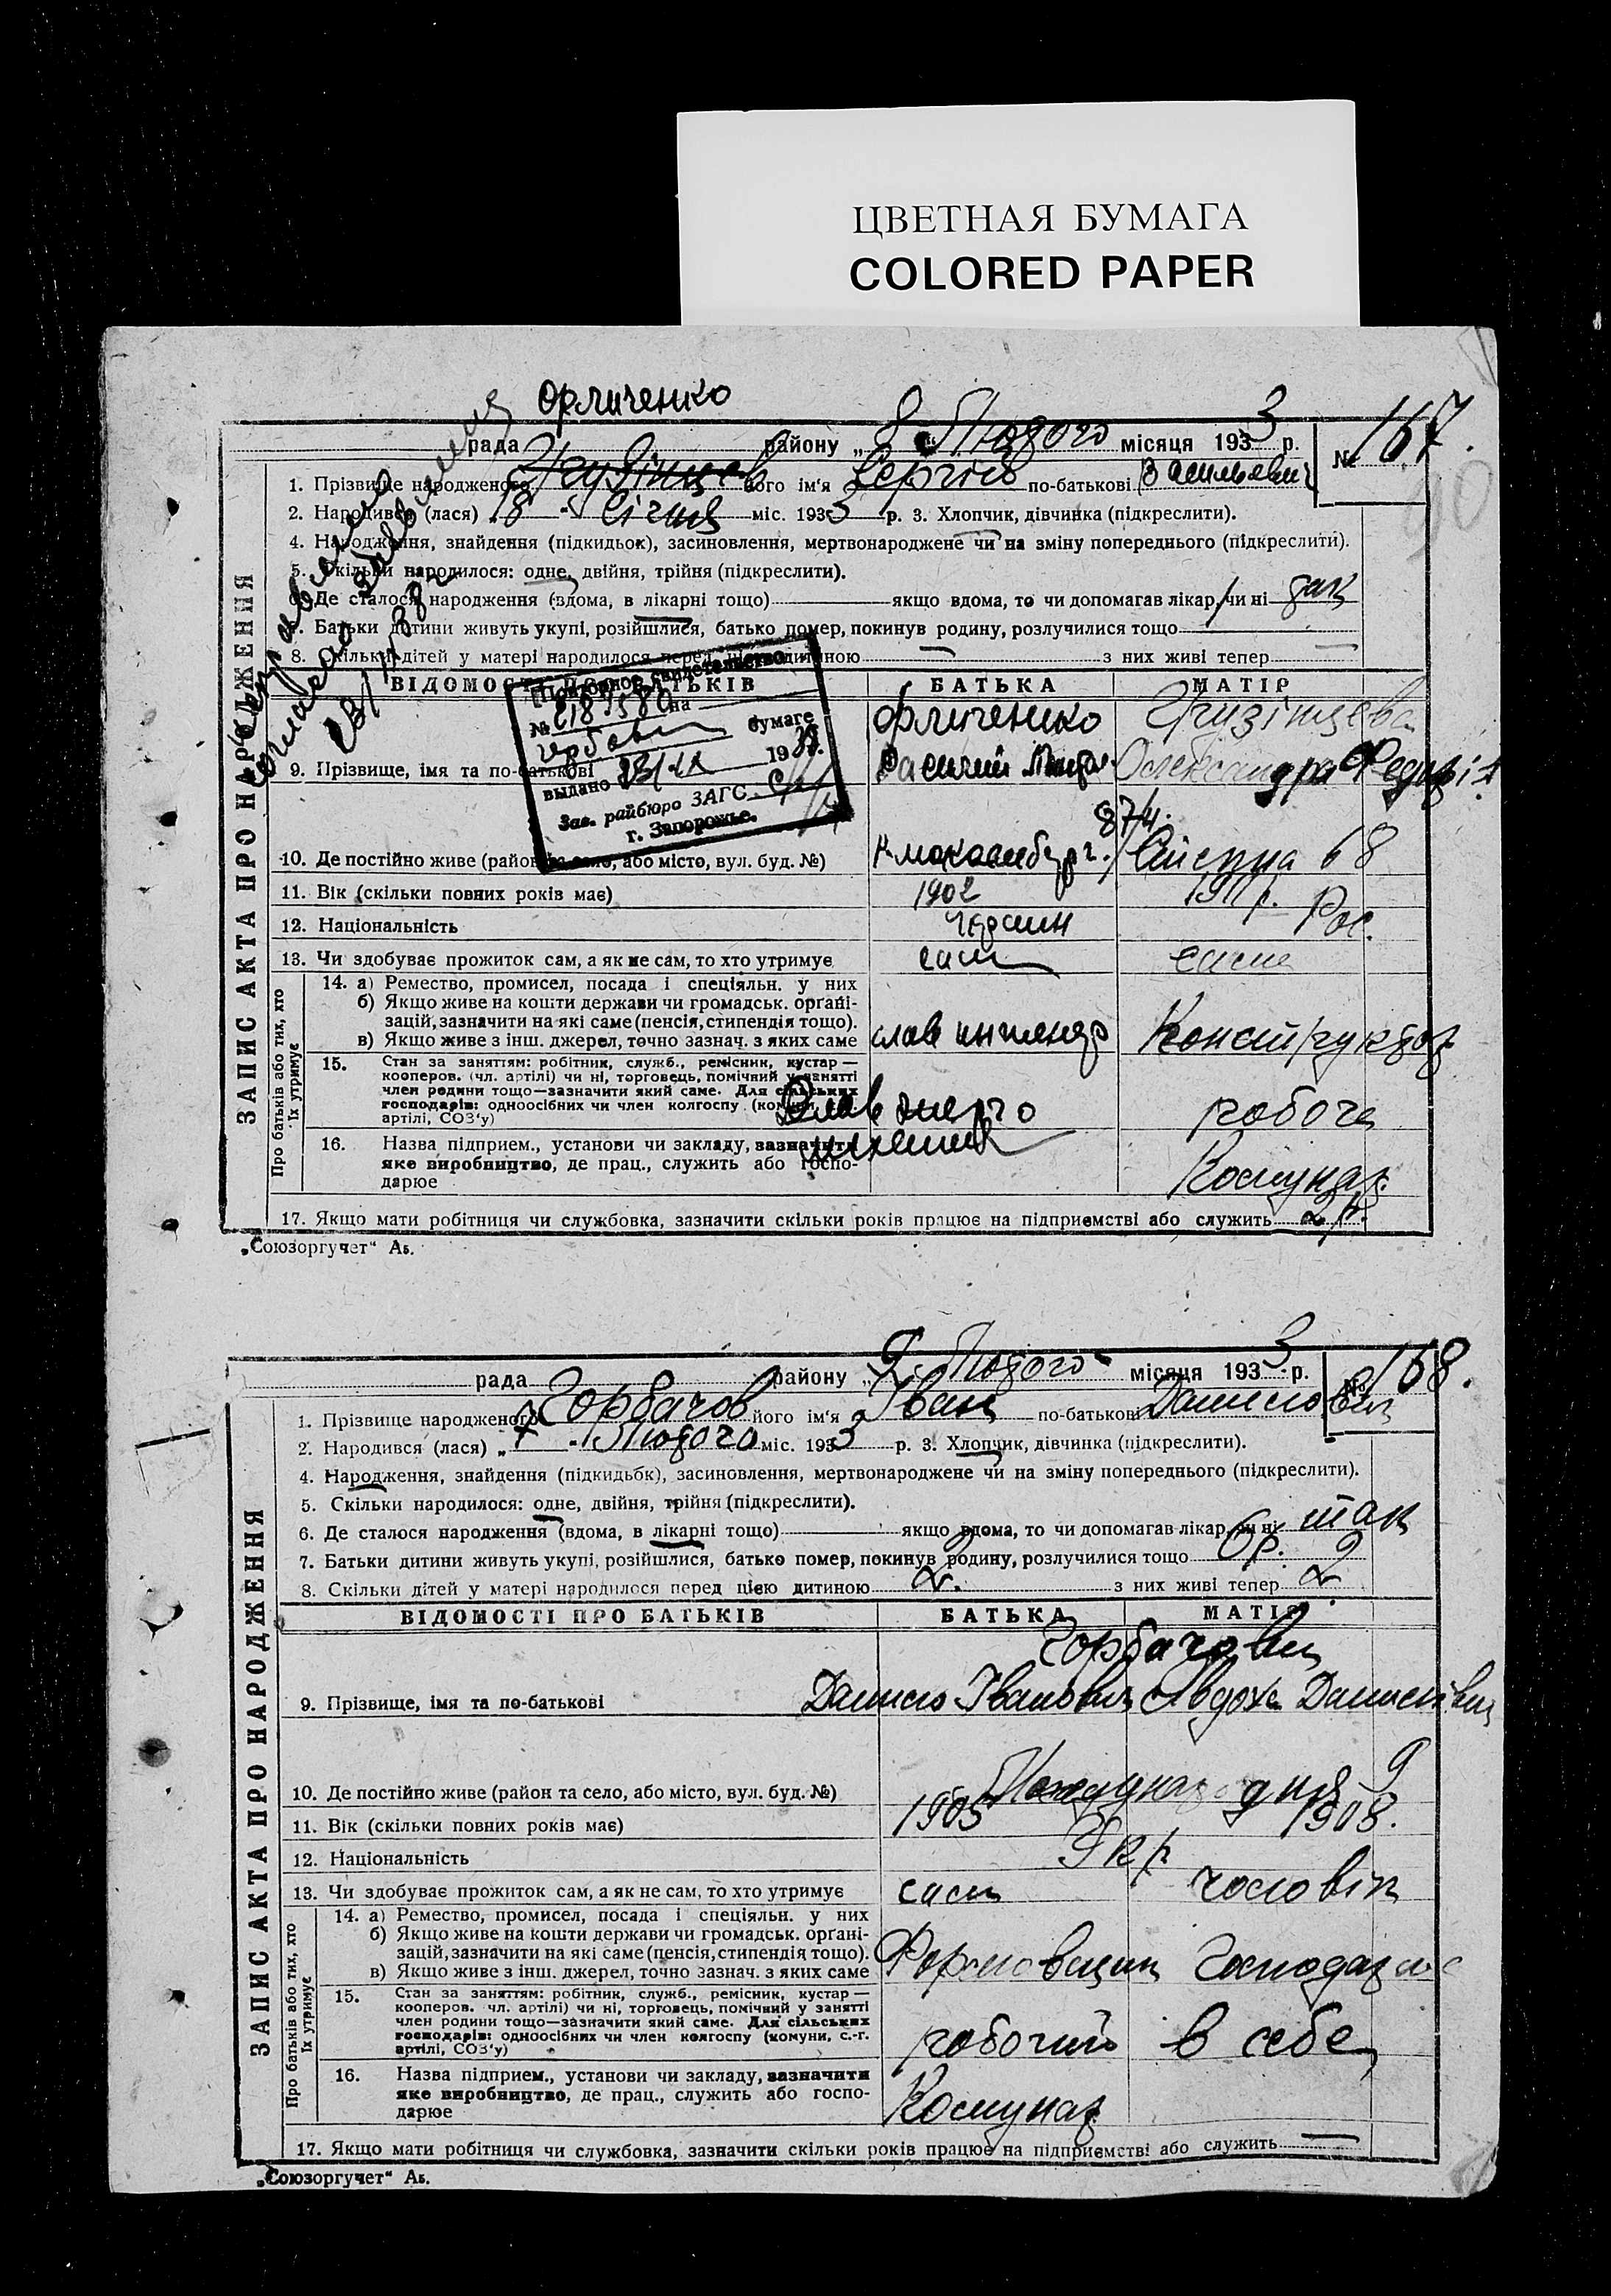 ЦВЕТНАЯ БУМАГА
COLORED PAPER
Орличенко
рада району „ 8 “ Лютого місяця 1933 р. № 167.
1. Прізвище народженого його ім'я Сергій по-батькові Васильевич
2. Народився (лася) 18 Січня міс. 1933 р. 3. Хлопчик, дівчинка (підкреслити).
4. Народження, знайдення (підкидьок), засиновлення, мертвонароджене чи на зміну попереднього (підкреслити).
5. Скільки народилося: одне, двійня, трійня (підкреслити).
6. Де сталося народження (вдома, в лікарні тощо) якщо вдома, то чи допомагав лікар, чи ні
7. Батьки дитини живуть укупі, розійшлися, батько помер, покинув родину, розлучилися тощо
8. Скільки дітей у матері народилося перед цією дитиною — з них живі тепер —
ВІДОМОСТІ ПРО БАТЬКІВ БАТЬКА МАТІР
Повторное свидетельство
№ на
бумаге
выдано 23/IX 1938.
Зав. райбюро ЗАГС
г. Запорожье.
Орличенко
9. Прізвище, імя та по-батькові Василий Олександра
10. Де постійно живе (район та село, або місто, вул. буд. №) 68
11. Вік (скільки повних років має) 1902 1911 р.
12. Національність Рос.
13. Чи здобуває прожиток сам, а як не сам, то хто утримує сам сама
14. а) Ремество, промисел, посада і спеціяльн. у них
б) Якщо живе на кошти держави чи громадськ. органі-
зацій, зазначити на які саме (пенсія, стипендія тощо).
в) Якщо живе з інш. джерел, точно зазнач. з яких саме инженер Конструктор
15. Стан за заняттям: робітник, служб., ремісник, кустар —
кооперов. (чл. артілі) чи ні, торговець, помічний у занятті
член родини тощо—зазначити який саме. Для сільських
господарів: одноосібних чи член колгоспу (комуни, с.-г.
артілі, СОЗ'у) робоча
16. Назва підприєм., установи чи закладу, зазначити
яке виробництво, де прац., служить або госпо-
дарює Комунар.
17. Якщо мати робітниця чи службовка, зазначити скільки років працює на підприємстві або служить 2 р.
ЗАПИС АКТА ПРО НАРОДЖЕННЯ
Про батьків або тих, хто
їх утримує
„Союзоргучет“ Аб.
рада району „ 9 “ Лютого місяця 1933 р. № 168.
1. Прізвище народженого Горбачов його ім'я Іван по-батькові Данилович
2. Народився (лася) „ 7 “ Лютого міс. 1933 р. 3. Хлопчик, дівчинка (підкреслити).
4. Народження, знайдення (підкидьбк), засиновлення, мертвонароджене чи на зміну попереднього (підкреслити).
5. Скільки народилося: одне, двійня, трійня (підкреслити).
6. Де сталося народження (вдома, в лікарні тощо) якщо вдома, то чи допомагав лікар, чи ні так
7. Батьки дитини живуть укупі, розійшлися, батько помер, покинув родину, розлучилися тощо 6 р.
8. Скільки дітей у матері народилося перед цією дитиною 2. з них живі тепер 2
ВІДОМОСТІ ПРО БАТЬКІВ БАТЬКА МАТІР
9. Прізвище, імя та по-батькові Данило Іванович Явдоха
10. Де постійно живе (район та село, або місто, вул. буд. №) 9
11. Вік (скільки повних років має) 1905 1908.
12. Національність Укр
13. Чи здобуває прожиток сам, а як не сам, то хто утримує сам чоловік
14. а) Ремество, промисел, посада і спеціяльн. у них
б) Якщо живе на кошти держави чи громадськ. органі-
зацій, зазначити на які саме (пенсія, стипендія тощо).
в) Якщо живе з інш. джерел, точно зазнач. з яких саме Формовщик
15. Стан за заняттям: робітник, служб., ремісник, кустар —
кооперов. чл. артілі) чи ні, торговець, помічний у занятті
член родини тощо—зазначити який саме. Для сільських
господарів: одноосібних чи член колгоспу (комуни, с.-г.
артілі, СОЗ'у) робочий в себе
16. Назва підприєм., установи чи закладу, зазначити
яке виробництво, де прац., служить або госпо-
дарює Комунар
17. Якщо мати робітниця чи службовка, зазначити скільки років працює на підприємстві або служить —
ЗАПИС АКТА ПРО НАРОДЖЕННЯ
Про батьків або тих, хто
їх утримує
„Союзоргучет“ Аб.